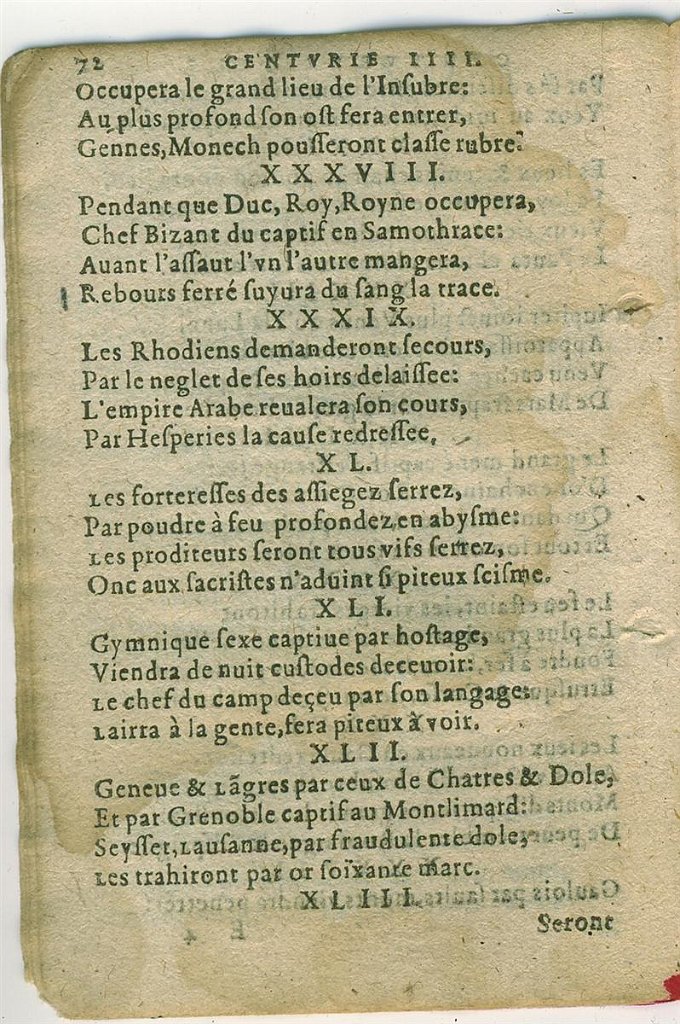 72 CENTVRIE IIII.
Occupera le grand lieu de l'Inſubre:
Au plus profond ſon oſt fera entrer,
Gennes, Monech pouſſeront claſſe rubre.
XXXVIII.
Pendant que Duc, Roy, Royne occupera,
Chef Bizant du captif en Samothrace:
Auant l'aſſaut l'vn l'autre mangera,
Rebours ferré ſuyura du ſang la trace.
XXXIX.
Les Rhodiens demanderont ſecours,
Par le neglet de ſes hoirs delaiſſee:
L'empire Arabe reualera ſon cours,
Par Heſperies la cauſe redreſſee,
XL.
Les fortereſſes des aſſiegez ſerrez,
Par poudre à feu profondez en abyſme:
Les proditeurs ſeront tous vifs ſerrez,
Onc aux ſacriſtes n'aduint ſi piteux ſciſme.
XLI.
Gymnique ſexe captiue par hoſtage,
Viendra de nuit cuſtodes deceuoir:
Le chef du camp deçeu par ſon langage:
Lairra à la gente, fera piteux à voir.
XLII.
Geneue & Lãgres par ceux de Chatres & Dole,
Et par Grenoble captif au Montlimard:
Seyſſet, Lauſanne, par fraudulente dole,
Les trahiront par or ſoïxante marc.
XLIII.
Seront